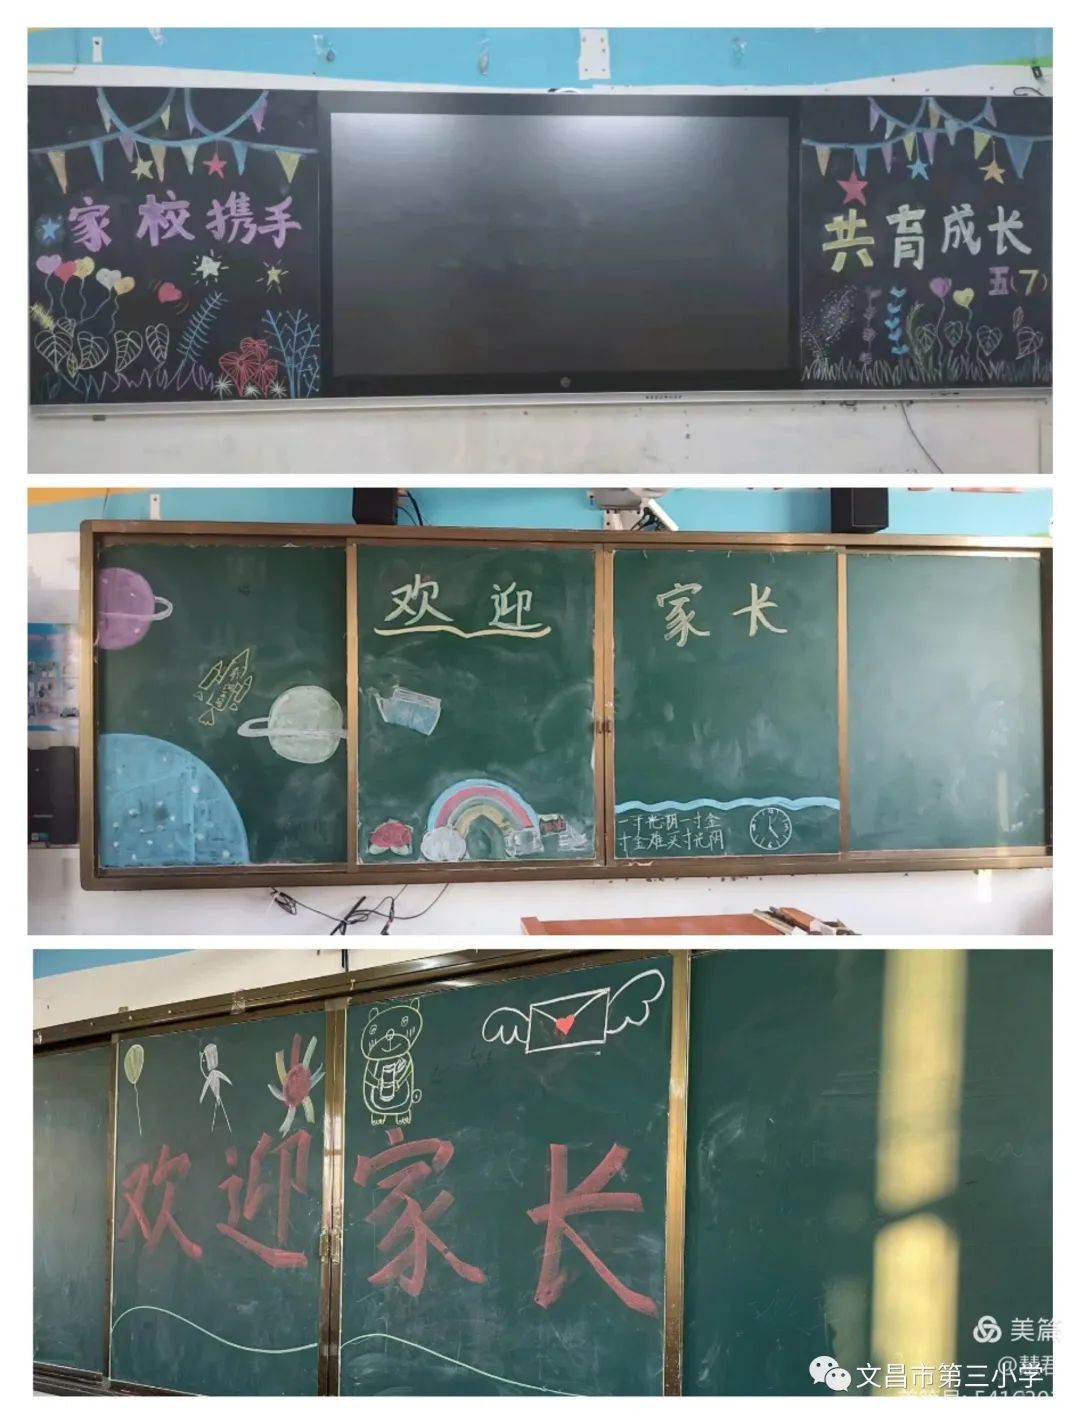 家校携手
共育成长
五(7)
欢迎
家长
一寸光阴一寸金
寸金难买寸光阴
欢迎
家长
美篇
@慧君
文昌市第三小学